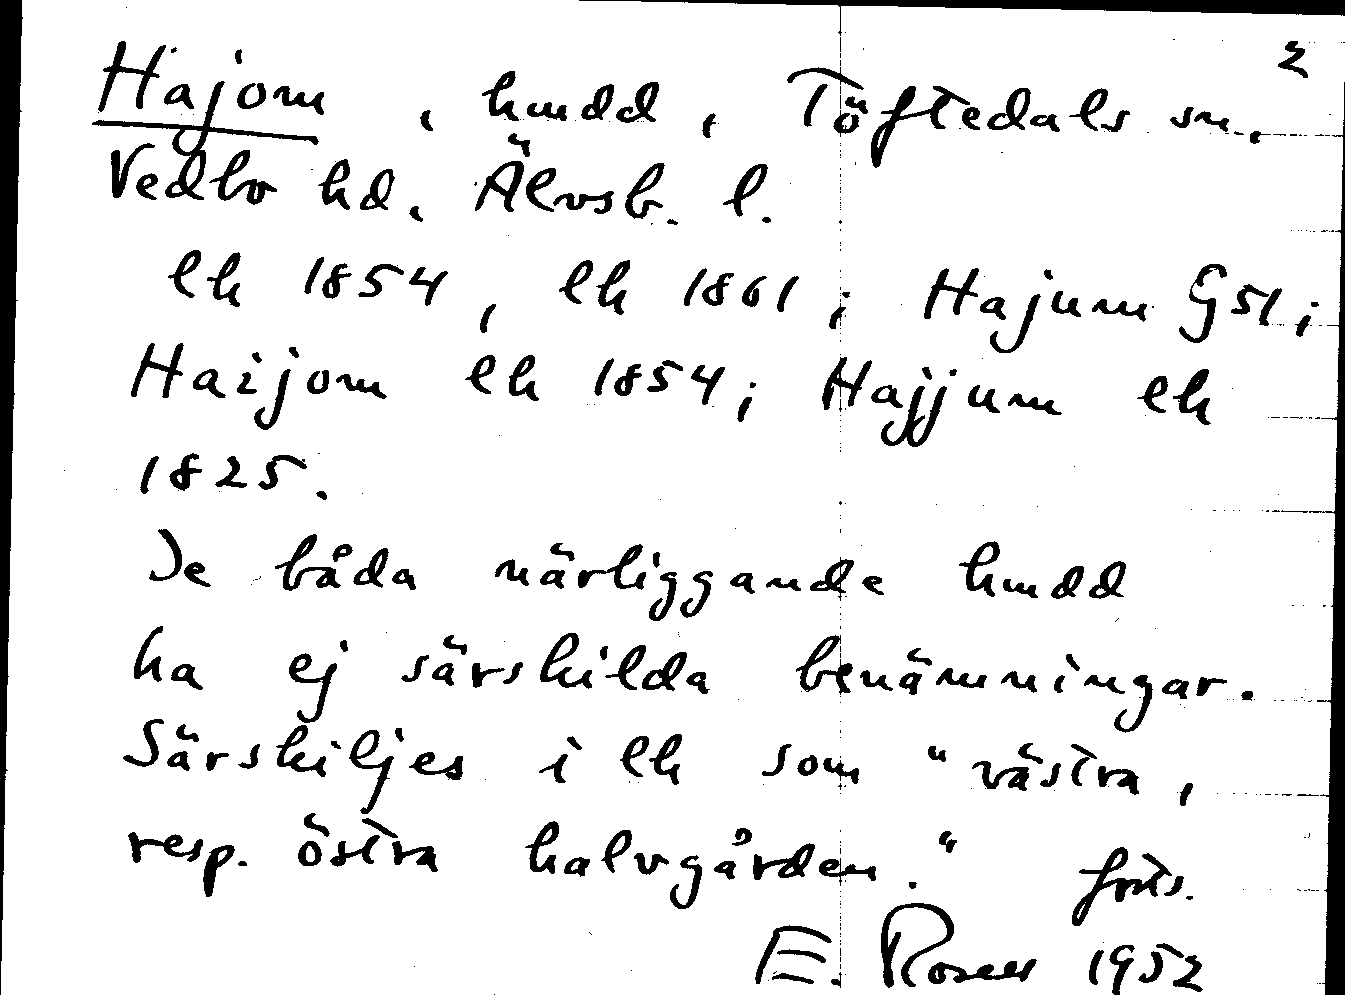 2
Hajom, hmdd, Töftedals sn,
Vedbo hd. Älvsb. l.
lk 1854, lk 1861; Hajum G51;
Haijom lk 1854; Hajjum lk
1825.
De båda närliggande hmdd
ha ej särskilda benämningar.
Särskiljes i lk som "västra,
resp. östra halvgården." forts.
E. Rosell 1952